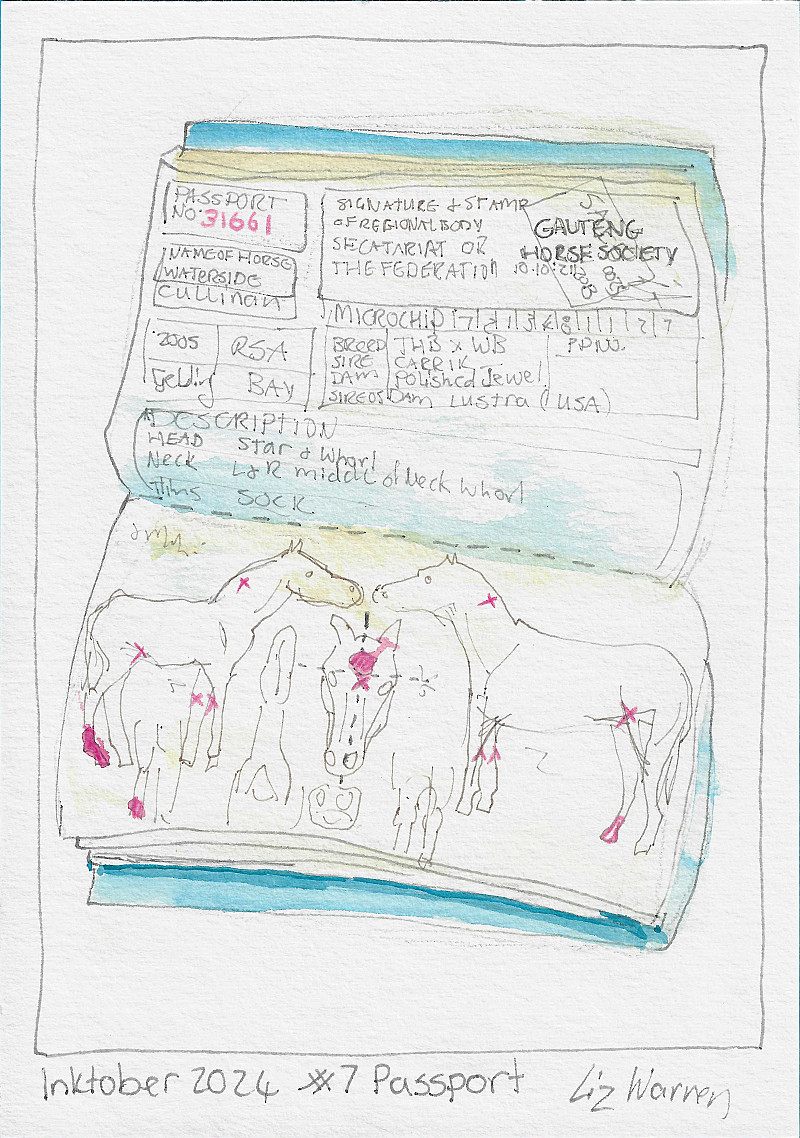 PASSPORT
NO: 31661
NAME OF HORSE
WATERSIDE
CULLINAN
SIGNATURE & STAMP
OF REGIONAL BODY
SECATARIAT OR
THE FEDERATION
GAUTENG
HORSE SOCIETY
10.10.
MICROCHIP
2005 RSA
Gelding BAY
BREED THB x WB
SIRE CARRIK
DAM Polished Jewel
SIRE OF DAM Lustra (USA)
DESCRIPTION
HEAD Star & Whorl
Neck L & R middle of Neck Whorl
SOCK
Inktober 2024 #7 Passport
Liz Warren